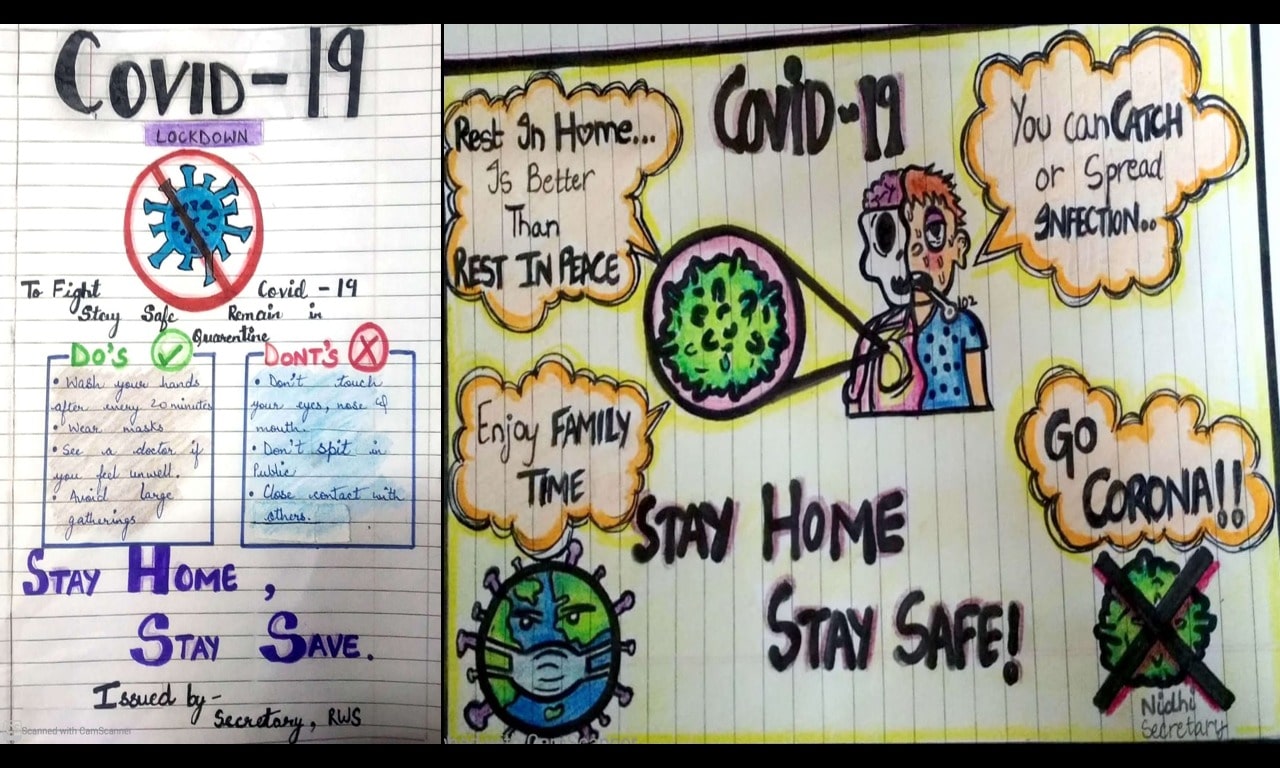 COVID-19
LOCKDOWN
To Fight Covid-19
Stay Safe Remain in
Quarentine
DO'S
• Wash your hands
after every 20 minutes
• Wear masks
• See a doctor if
you feel unwell.
• Avoid large
gatherings
DONT'S
• Don't touch
your eyes, nose &
mouth.
• Don't spit in
Public
• Close contact with
others.
STAY HOME,
STAY SAVE.
Issued by-
Secretary, RWS
Scanned with CamScanner
COVID-19
Rest In Home...
Is Better
Than
REST IN PEACE
You can CATCH
or Spread
INFECTION..
102
Enjoy FAMILY
TIME
GO
CORONA!!
STAY HOME
STAY SAFE!
Nidhi
Secretary